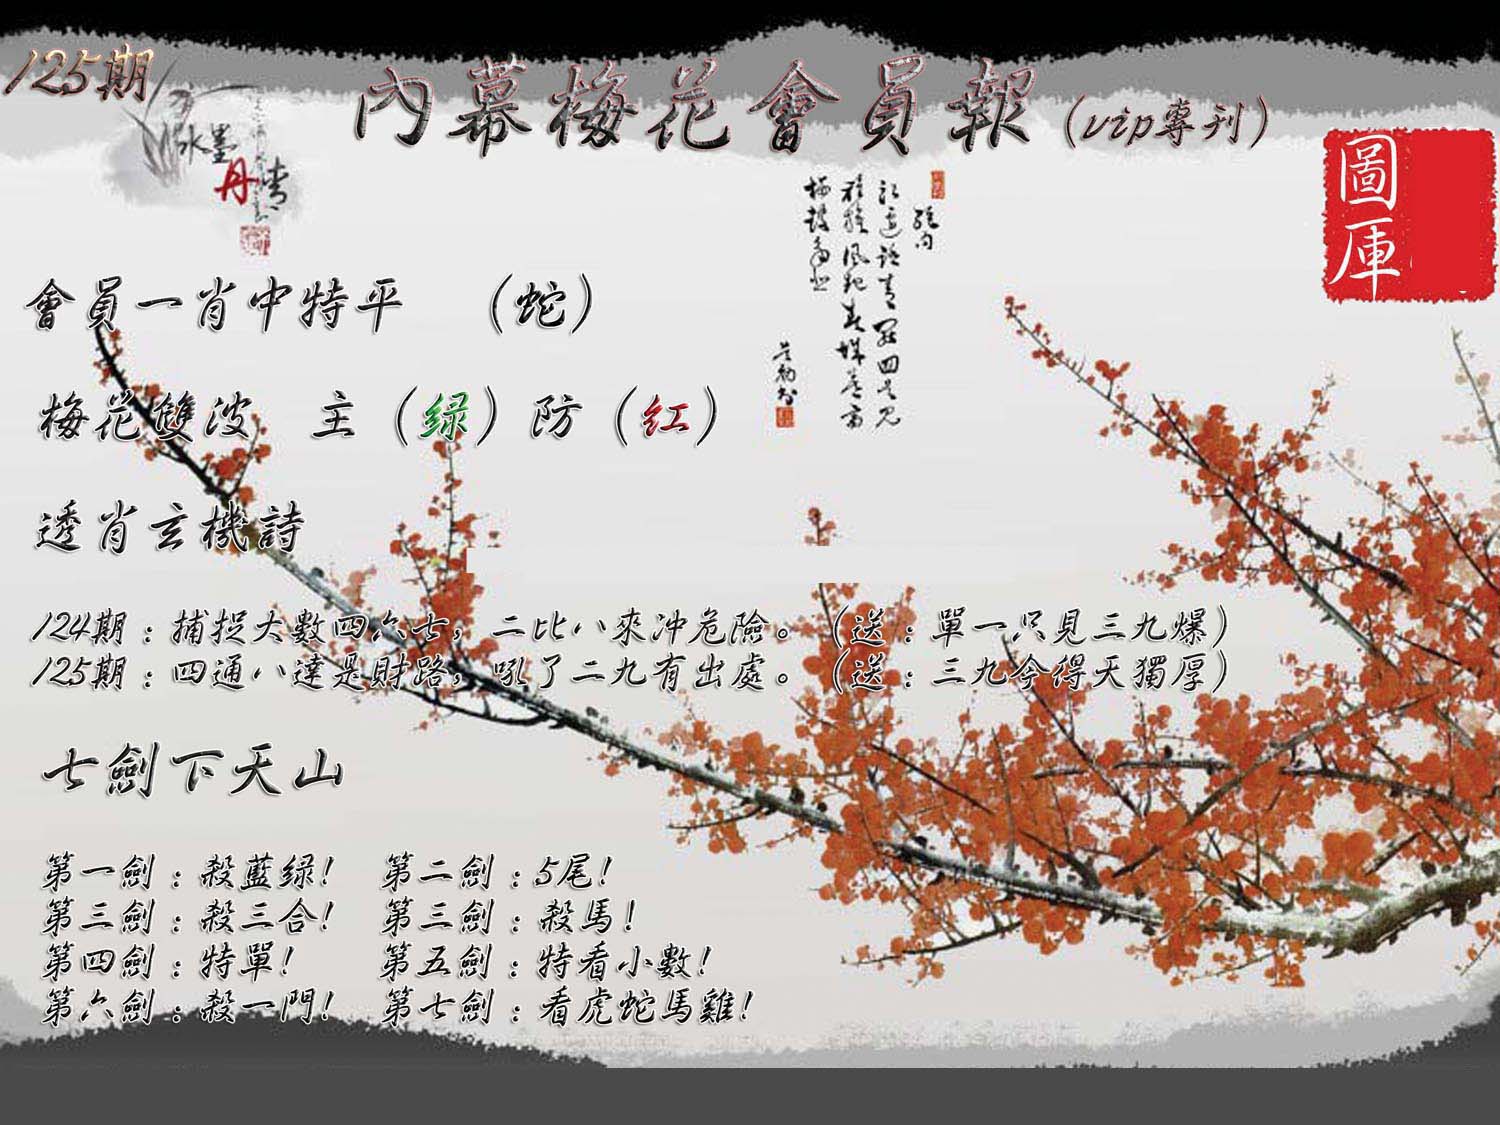 125期
內幕梅花會員報（vip專刊）
水墨
丹青
圖庫
會員一肖中特平　（蛇）
梅花雙波　主（绿）防（红）
透肖玄機詩
124期：捕捉大數四六七，二比八來沖危險。（送：單一只見三九爆）
125期：四通八達是財路，吼了二九有出處。（送：三九今得天獨厚）
七劍下天山
第一劍：殺藍绿！　第二劍：5尾！
第三劍：殺三合！　第三劍：殺馬！
第四劍：特單！　第五劍：特看小數！
第六劍：殺一門！　第七劍：看虎蛇馬雞！